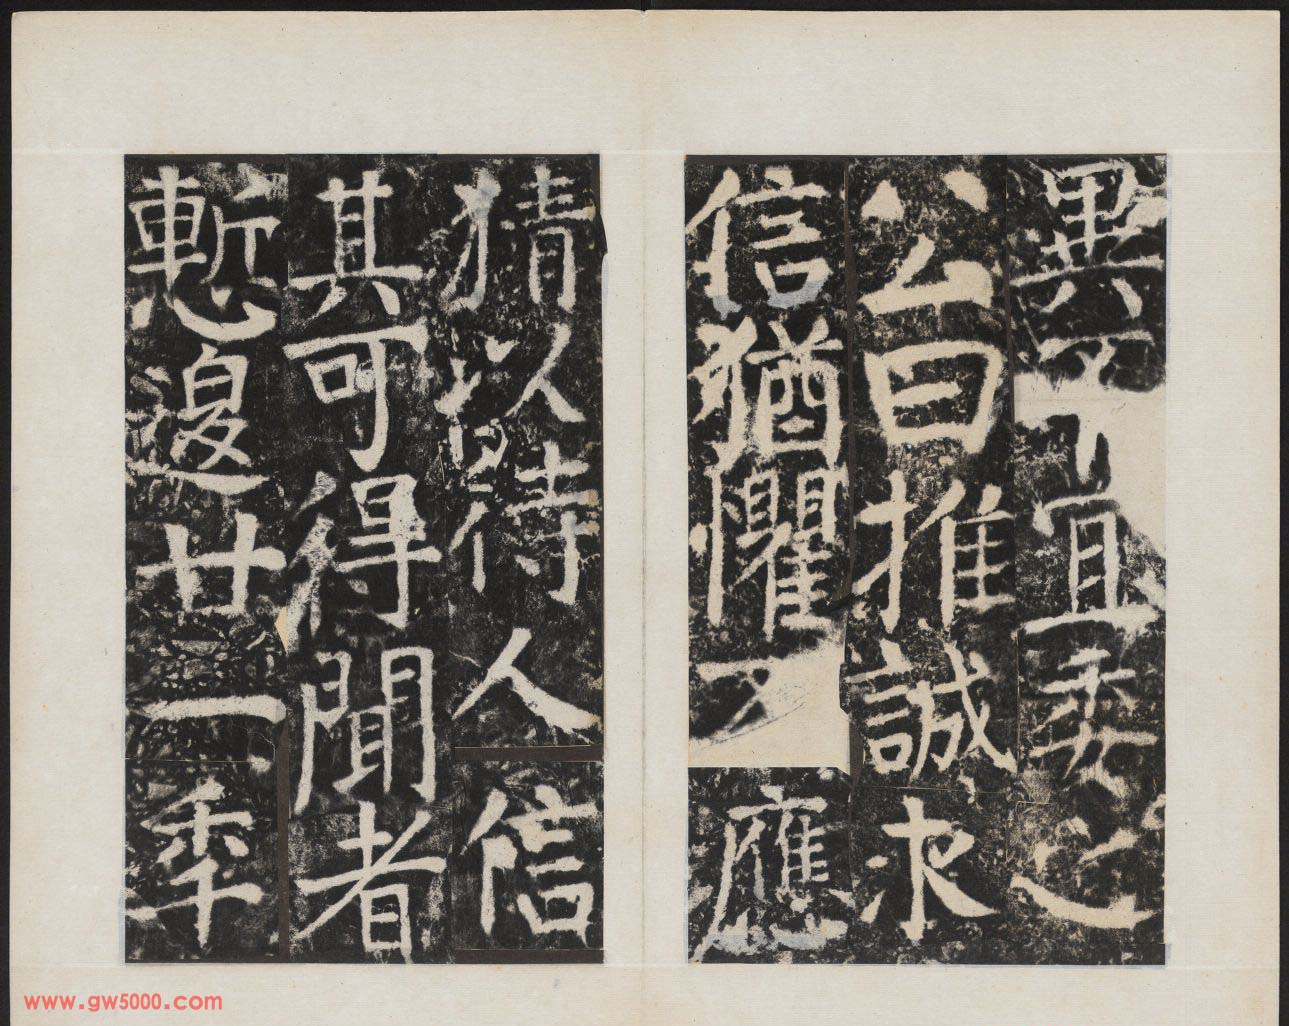 異不宜委之
公曰推誠求
信猶懼不應
猜以待人信
其可得聞者
慙邊廿一年
www.gw5000.com